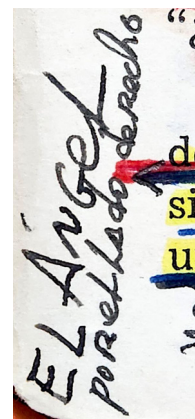 EL ÁNGEL
por el lado derecho
“
d
si
u